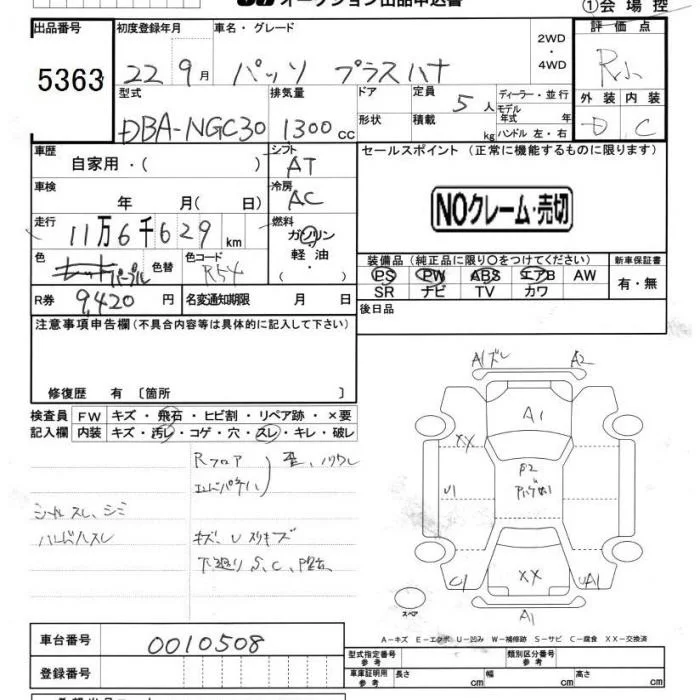 オークション出品申込書
①会場控
出品番号 初度登録年月 車名・グレード 2WD・4WD 評価点
5363 22 9月 パッソ プラスハナ R
型式 排気量 ドア形状 定員 5人 積載 kg ディーラー・並行 モデル年式 年 ハンドル 左・右 外装 内装
DBA-NGC30 1300cc D C
車歴 自家用・( ) シフト AT セールスポイント (正常に機能するものに限ります)
車検 年 月( 日) 冷房 AC NOクレーム・売切
走行 11万6千629km 燃料 ガソリン 軽油・( )
色 パープル 色替 色コード R54 装備品(純正品に限り○をつけてください) 新車保証書
PS PW ABS エアB AW 有・無
SR ナビ TV カワ
R券 9,420円 名変通知期限 月 日 後日品
注意事項申告欄(不具合内容等は具体的に記入して下さい)
修復歴 有 〔箇所 〕
検査員 FW キズ・飛石・ヒビ割・リペア跡・×要
記入欄 内装 キズ・汚レ・コゲ・穴・スレ・キレ・破レ
Rフロア
エンドパネル
シートスレ、シミ
ハンドルスレ
キズ、Uスリキズ
下廻りS、C、
A1ズレ A2
A1
XX
U1
XX
C1 UA1
A1
スペア
A-キズ E-エクボ U-凹み W-補修跡 S-サビ C-腐食 XX-交換済
車台番号 0010508
登録番号
型式指定番号 参考 類別区分番号 参考
車庫証明用 参考 長さ cm 幅 cm 高さ cm